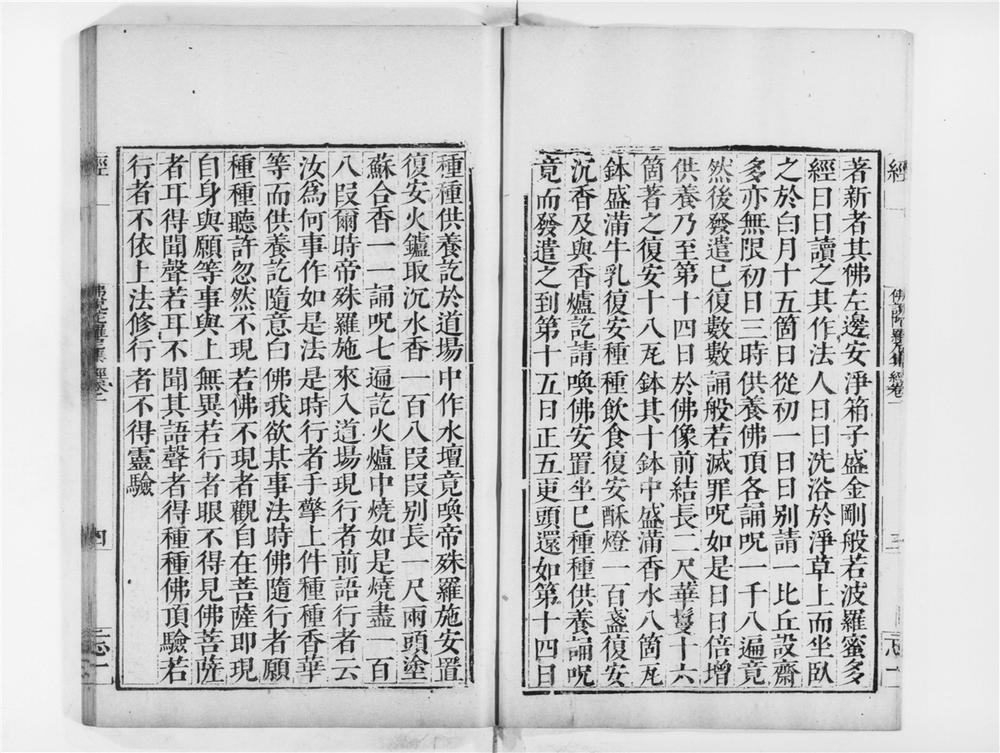 經
佛說陀羅尼集經卷一
著新者其佛左邊安淨箱子盛金剛般若波羅蜜多
經日日讀之其作法人日日洗浴於淨草上而坐臥
之於白月十五箇日從初一日日別請一比丘設齋
多亦無限初日三時供養佛頂各誦呪一千八遍竟
然後發遣已復數數誦般若滅罪呪如是日日倍增
供養乃至第十四日於佛像前結長二尺華鬘十六
箇著之復安十八瓦鉢其十鉢中盛滿香水八箇瓦
鉢盛滿牛乳復安種種飲食復安酥燈一百盞復安
沉香及與香爐訖請喚佛安置坐已種種供養誦呪
竟而發遣之到第十五日正五更頭還如第十四日
種種供養訖於道場中作水壇竟喚帝殊羅施安置
復安火鑪取沉水香一百八段段別長一尺兩頭塗
蘇合香一一誦呪七遍訖火爐中燒如是燒盡一百
八段爾時帝殊羅施來入道場現行者前語行者云
汝爲何事作如是法是時行者手擎上件種種香華
等而供養訖隨意白佛我欲某事法時佛隨行者願
種種聽許忽然不現若佛不現者觀自在菩薩即現
自身與願等事與上無異若行者眼不得見佛菩薩
者耳得聞聲若耳不聞其語聲者得種種佛頂驗若
行者不依上法修行者不得靈驗
經
四